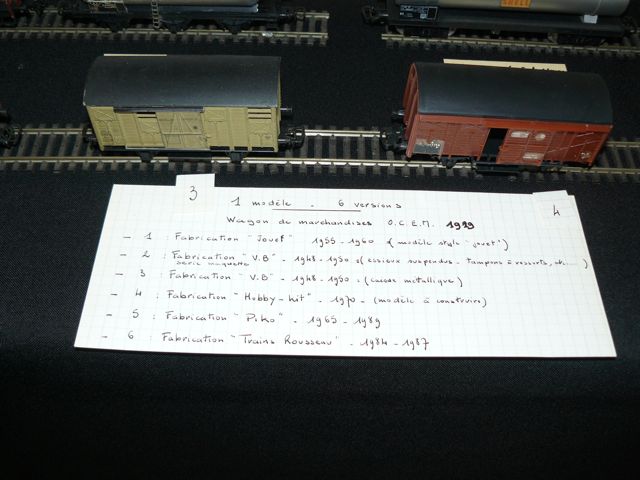 SHELL
3
1 modèle - 6 versions
4
Wagon de marchandises O.C.E.M. 1919
- 1 : Fabrication "Jouef" 1955-1960 (modèle style "jouet")
- 2 : Fabrication "V.B" - 1948-1950 : (essieux suspendus - Tampons à ressorts, etc.....)
série maquette
- 3 : Fabrication "V.B" - 1948-1950 : (caisse métallique)
- 4 : Fabrication "Hobby-kit" - 1970 - (modèle à construire)
- 5 : Fabrication "Piko" - 1965 - 1989
- 6 : Fabrication "Trains Rousseau" - 1984 - 1987